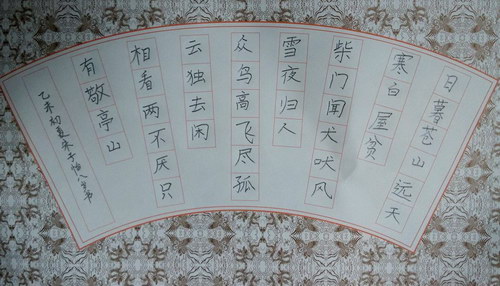 日暮苍山远天
寒白屋贫
柴门闻犬吠风
雪夜归人
众鸟高飞尽孤
云独去闲
相看两不厌只
有敬亭山
乙未初夏朱子怡八岁书